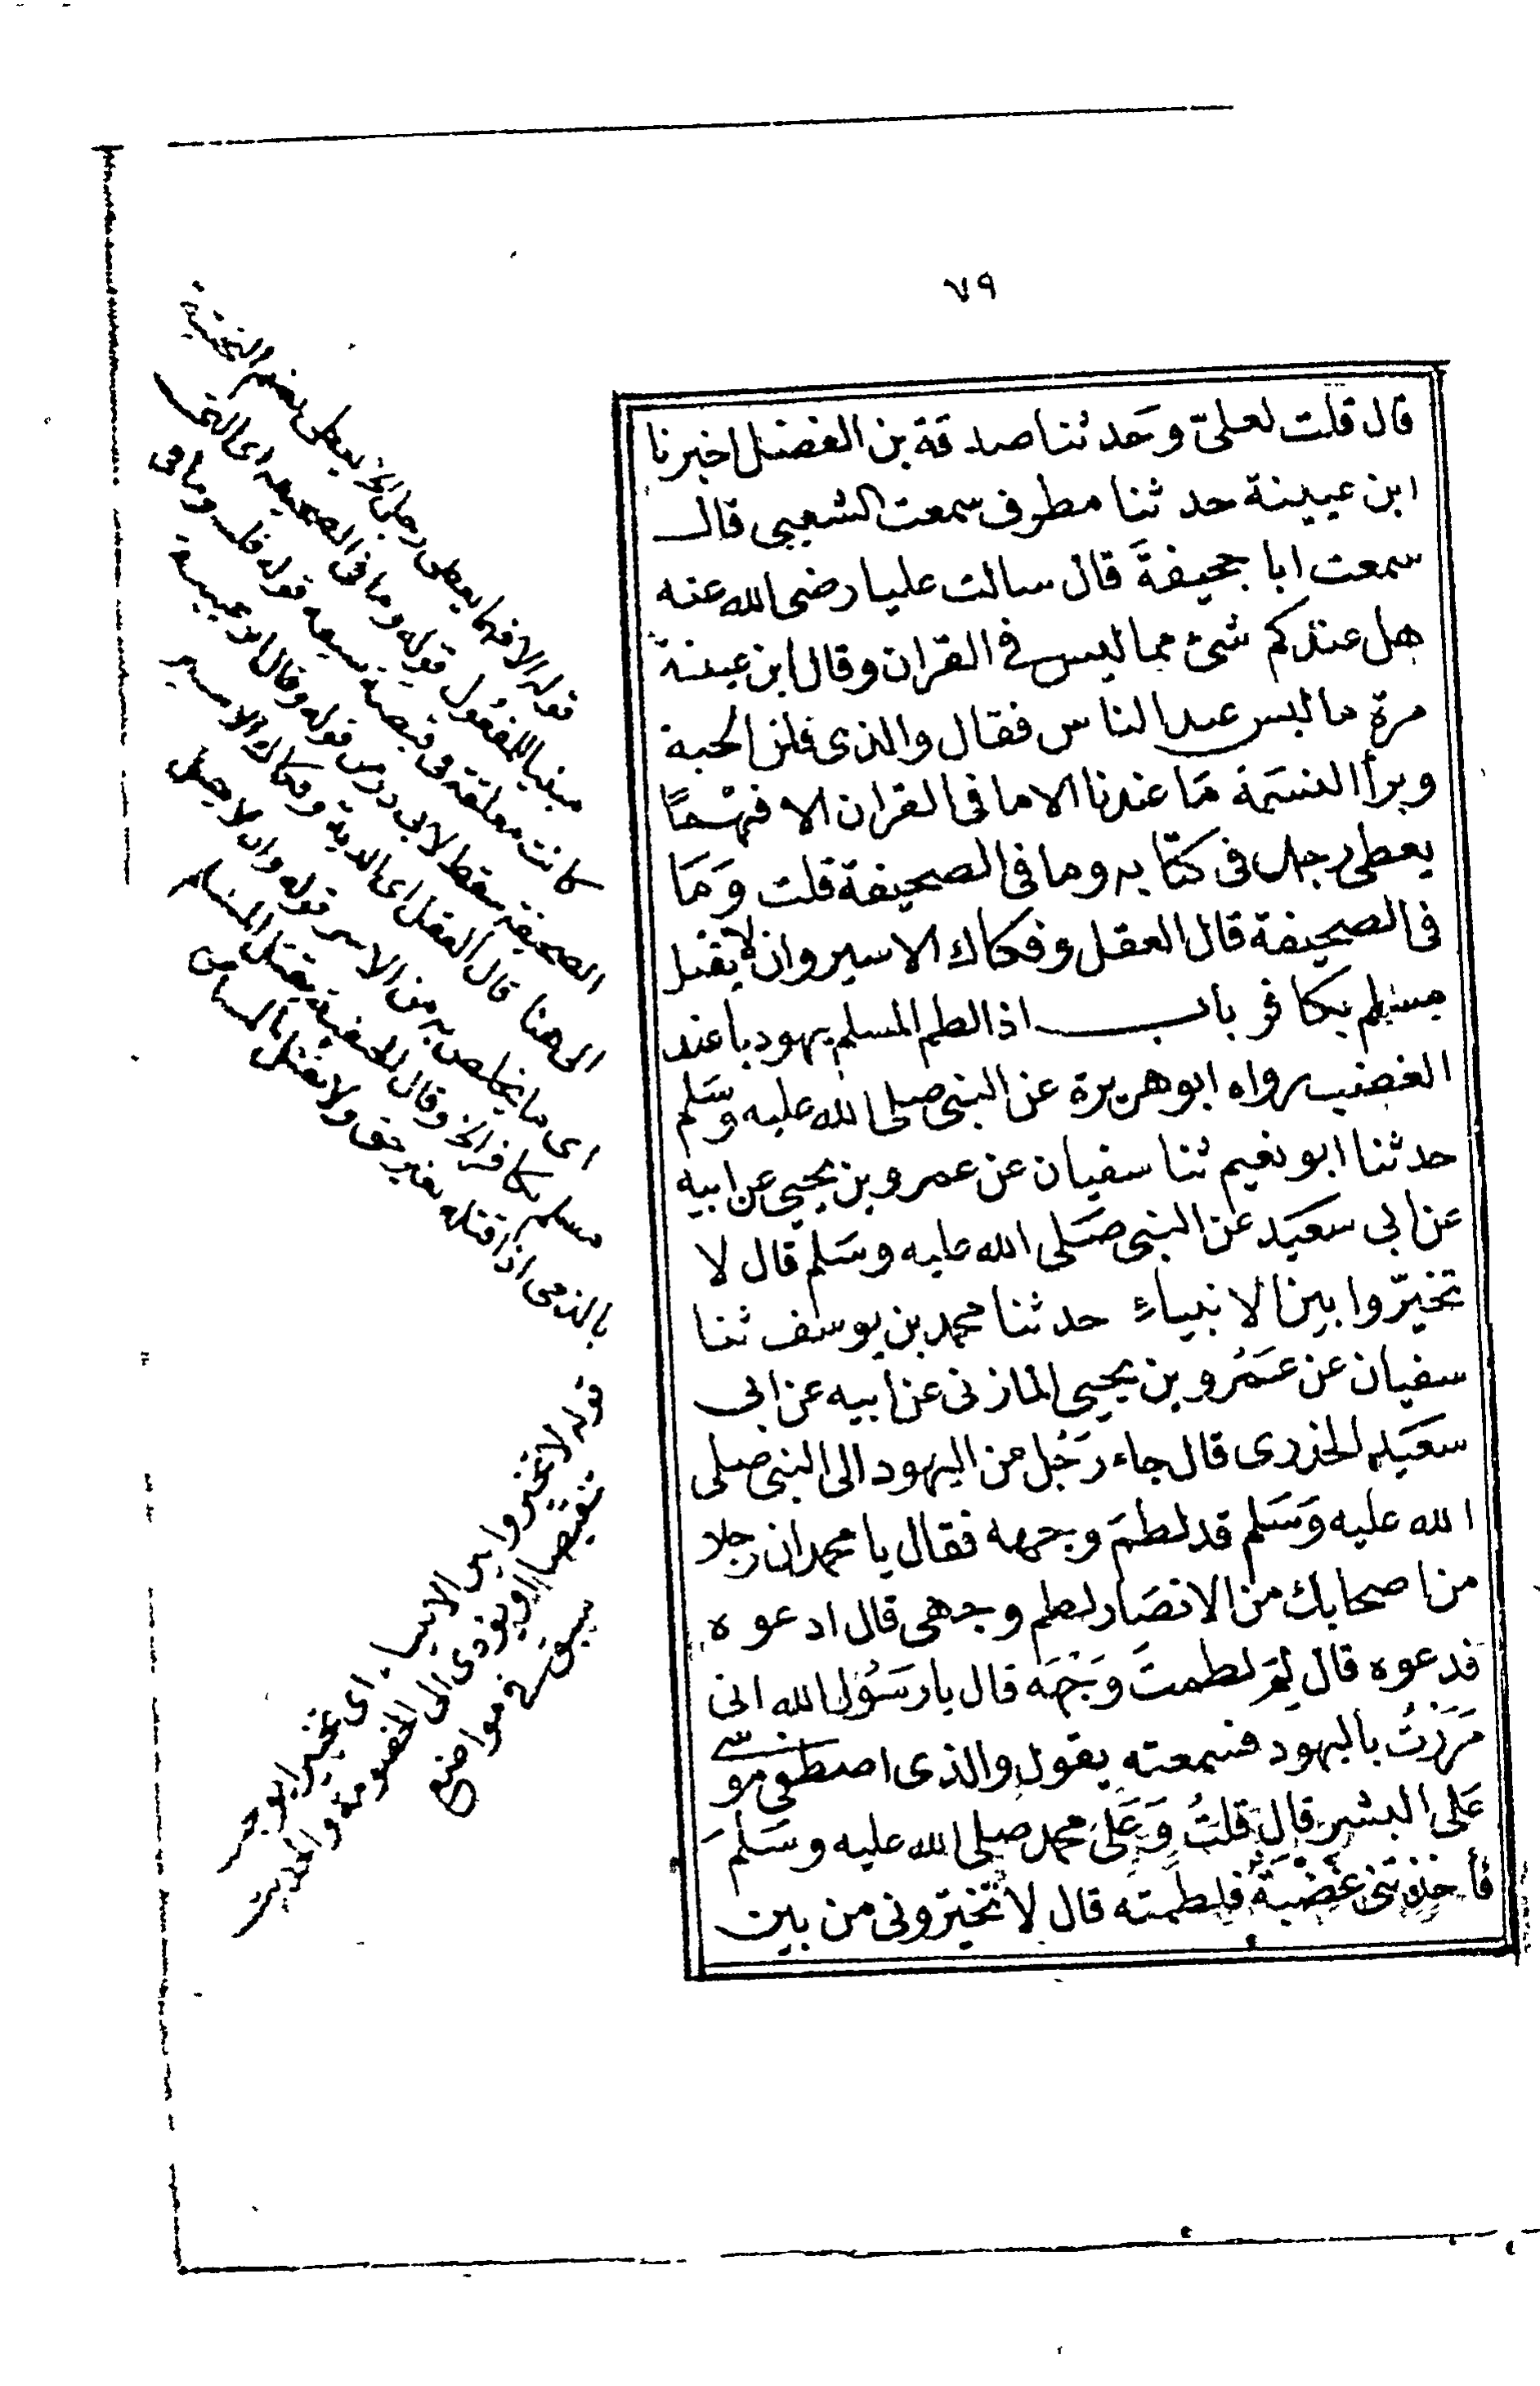 ٧٩
قال قلت لعليّ وحَدثنا صدقة بن الفضل اخبرنا
ابن عيينة حدثنا مطرف سمعت الشعبي قال
سمعت ابا جحيفةَ قال سالت عليا رضى الله عنه
هل عندكم شئ مما ليس فى القران وقال ابن عيينة
مرة ما ليس عند الناس فقال والذى فلق الحبة
وبرأ النسَمة مَا عندنا الا ما فى القران الا فهْمًا
يعطى رجل فى كتابه وما فى الصحيفة قلت وَمَا
فى الصحيفة قال العقل وفكاك الاسير وان لا يقتل
مسلم بكافر باب اذا لطم المسلم يهوديا عند
الغضب رواه ابو هريرة عن النبى صلى الله عليه وسَلم
حدثنا ابو نعيم ثنا سفيان عن عمرو بن يحيى عن ابيه
عن ابى سعَيد عن النبى صَلى الله عليه وسَلم قال لا
تخيّروا بين الانبياء حدثنا محمد بن يوسف ثنا
سفيان عن عَمْرو بن يحيى المازنى عن ابيه عن ابى
سعَيد الخدرى قال جاء رَجُل من اليهود الى النبى صلى
الله عليه وَسَلم قد لطمَ وجهه فقال يا محمد ان رجلا
من اصحابك من الانصَار لطم وجهى قال ادعوه
فدعوه قال لِمَ لطمتَ وَجْهَه قال يا رسَوُل الله انى
مَرَرْتُ باليهود فسمعته يقول والذى اصطفى موسى
عَلى البشر قال قلتُ وَعَلى محمد صلى الله عليه وسَلمَ
فأخذتنى غضْبَةٌ فلطمته قال لا تخيّرونى من بين
قوله الا فهما يعطى رجل الخ يعطى بضم التحتية
مبنيا للمفعُول قوله وما فى الصحيفة اى التى
كانت معلقة فى قبضة سيفه قوله قلت وما فى
الصحيفة سقط لابى ذر من قوله وقال ابن عيينة
الى هنا قال العقل اى الدية وفكاك الاسير
اى ما يخلص به من الاسر قوله وان لا يقتل
مسلم بكافر الخ وقال الحنفية يقتل المسلم
بالذمى اذا قتله بغير حق ولا يقتل بالمستامن
قوله لا تخيروا بين الانبياء اى تخييرا يوجب
تنقيصا او يؤدى الى الخصومة والحديث
سبق فى مواضع